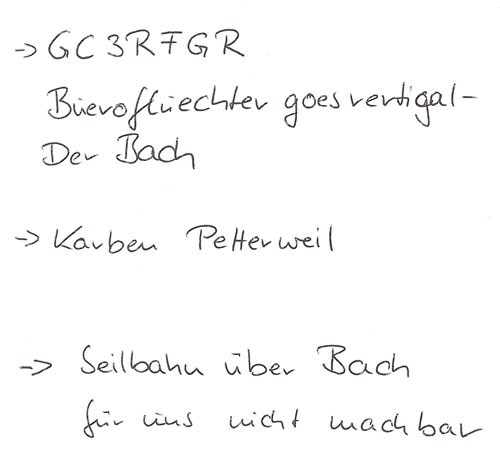 -> GC3RFGR
Bueroflüechter goes vertigal -
Der Bach
-> Karben Petterweil
-> Seilbahn über Bach
für uns nicht machbar